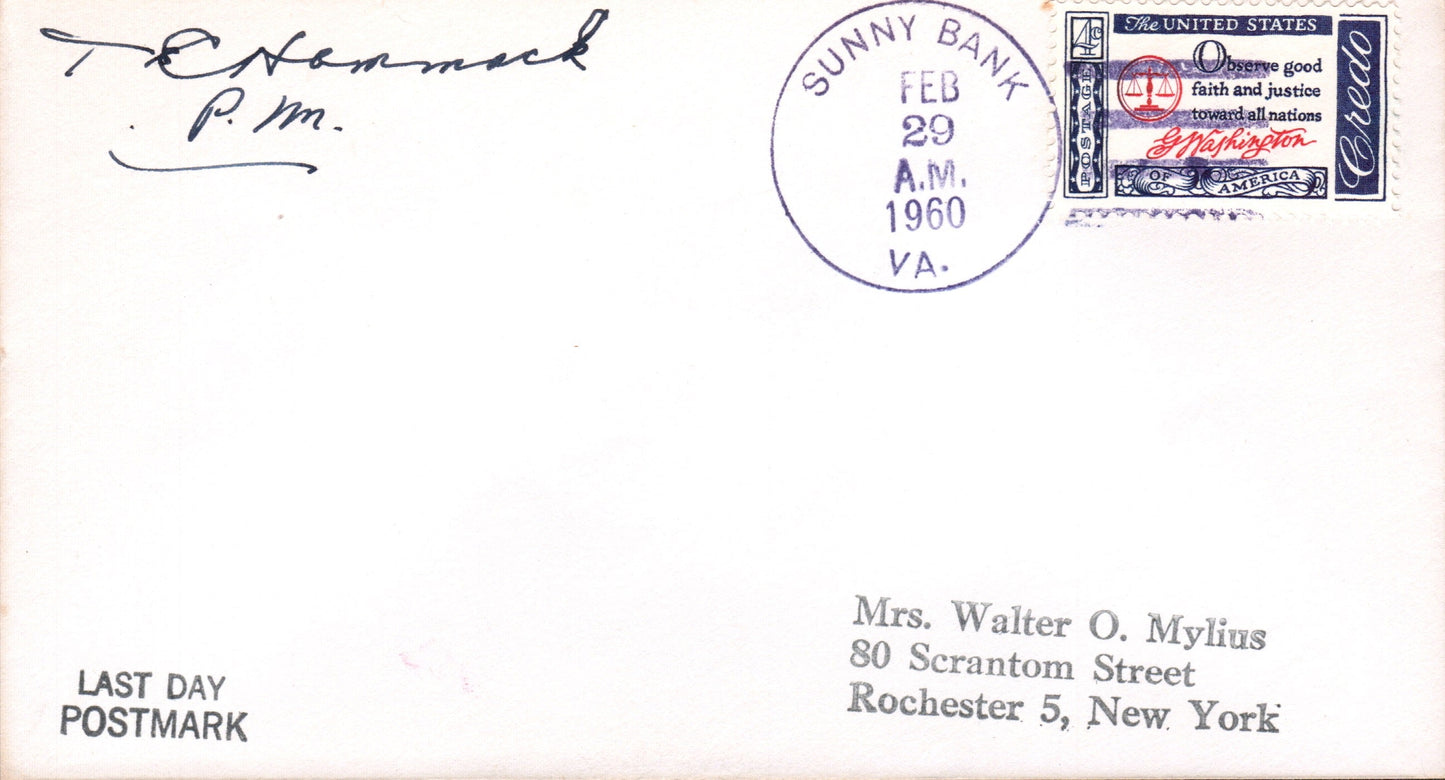 T E Hammack
P. M.
SUNNY BANK
FEB
29
A.M.
1960
VA.
4c
POSTAGE
The UNITED STATES
Observe good
faith and justice
toward all nations
G Washington
OF AMERICA
Credo
Mrs. Walter O. Mylius
80 Scrantom Street
Rochester 5, New York
LAST DAY
POSTMARK